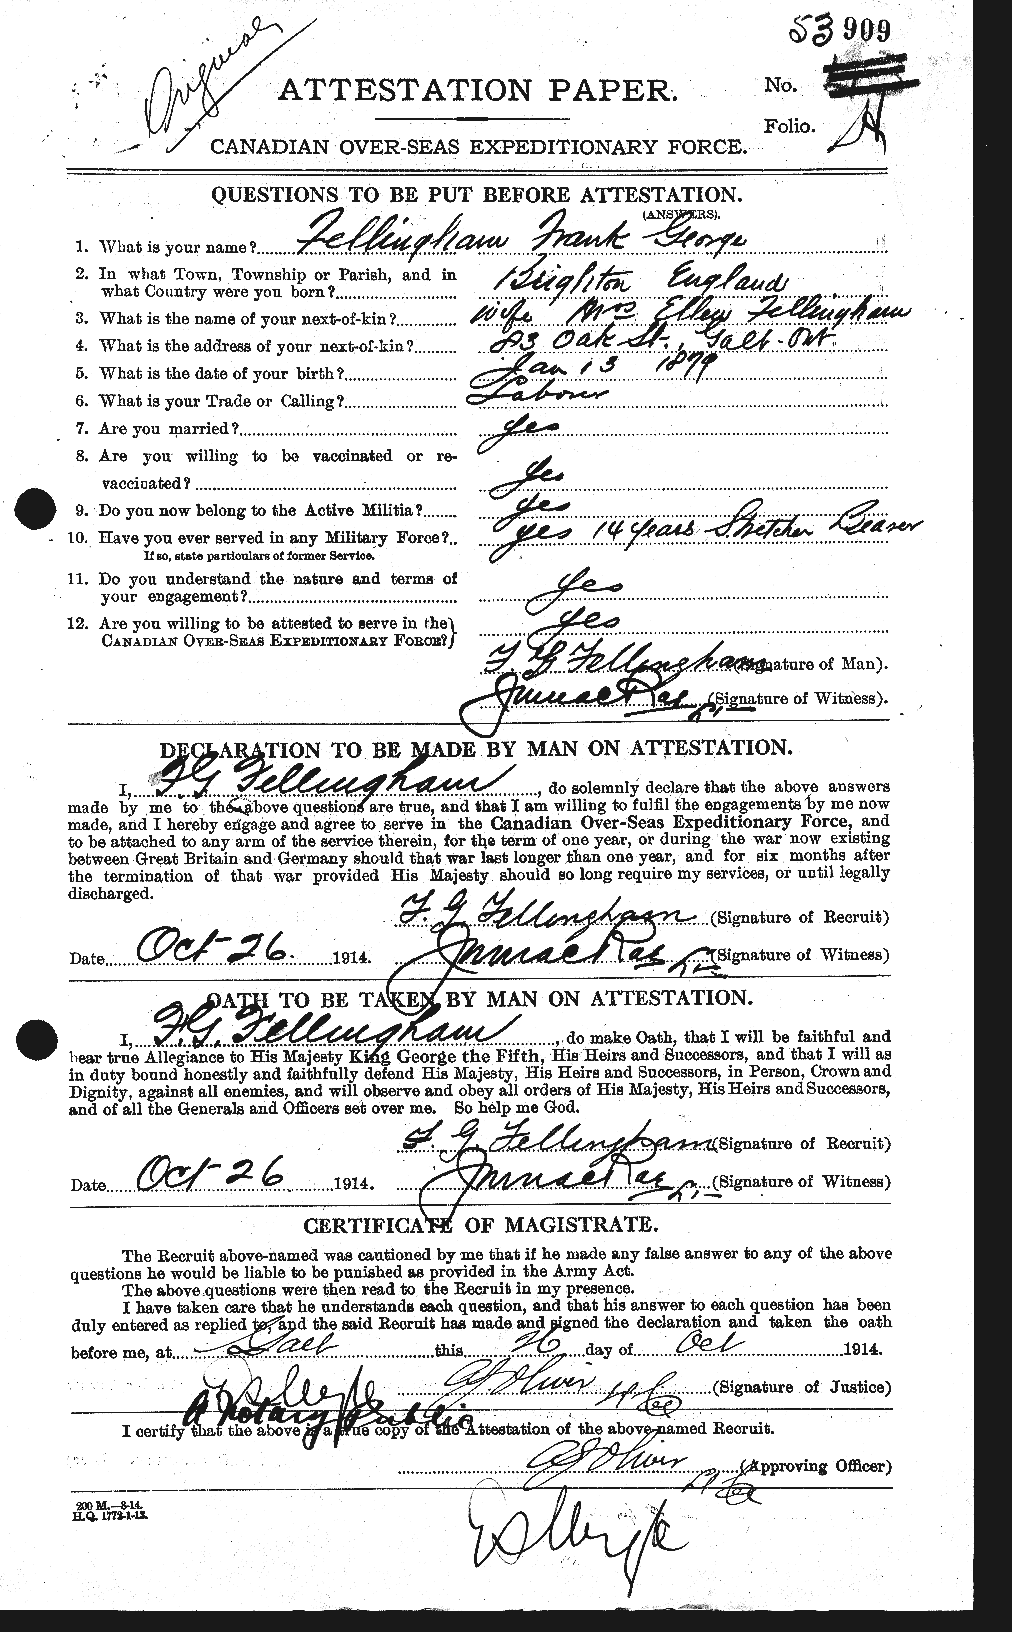 Original
53909
ATTESTATION PAPER.
No.
Folio.
CANADIAN OVER-SEAS EXPEDITIONARY FORCE.
QUESTIONS TO BE PUT BEFORE ATTESTATION.
(ANSWERS).
1. What is your name? Fellingham Frank George
2. In what Town, Township or Parish, and in
what Country were you born? Brighton England
3. What is the name of your next-of-kin? wife Mrs Ellen Fellingham
4. What is the address of your next-of-kin? 83 Oak St., Galt Ont.
5. What is the date of your birth? Jan 13 1879
6. What is your Trade or Calling? Labourer
7. Are you married? Yes
8. Are you willing to be vaccinated or re-
vaccinated? Yes
9. Do you now belong to the Active Militia? Yes
10. Have you ever served in any Military Force? Yes 14 years Stretcher Bearer
If so, state particulars of former Service.
11. Do you understand the nature and terms of
your engagement? Yes
12. Are you willing to be attested to serve in the
CANADIAN OVER-SEAS EXPEDITIONARY FORCE? Yes
F G Fellingham (Signature of Man).
(Signature of Witness).
DECLARATION TO BE MADE BY MAN ON ATTESTATION.
I, F G Fellingham, do solemnly declare that the above answers
made by me to the above questions are true, and that I am willing to fulfil the engagements by me now
made, and I hereby engage and agree to serve in the Canadian Over-Seas Expeditionary Force, and
to be attached to any arm of the service therein, for the term of one year, or during the war now existing
between Great Britain and Germany should that war last longer than one year, and for six months after
the termination of that war provided His Majesty should so long require my services, or until legally
discharged.
F. G Fellingham (Signature of Recruit)
Date Oct 26. 1914. (Signature of Witness)
OATH TO BE TAKEN BY MAN ON ATTESTATION.
I, F. G. Fellingham, do make Oath, that I will be faithful and
bear true Allegiance to His Majesty King George the Fifth, His Heirs and Successors, and that I will as
in duty bound honestly and faithfully defend His Majesty, His Heirs and Successors, in Person, Crown and
Dignity, against all enemies, and will observe and obey all orders of His Majesty, His Heirs and Successors,
and of all the Generals and Officers set over me. So help me God.
F. G. Fellingham (Signature of Recruit)
Date Oct 26 1914. (Signature of Witness)
CERTIFICATE OF MAGISTRATE.
The Recruit above-named was cautioned by me that if he made any false answer to any of the above
questions he would be liable to be punished as provided in the Army Act.
The above questions were then read to the Recruit in my presence.
I have taken care that he understands each question, and that his answer to each question has been
duly entered as replied to, and the said Recruit has made and signed the declaration and taken the oath
before me, at Galt this 26 day of Oct 1914.
(Signature of Justice)
A Notary Public
I certify that the above is a true copy of the Attestation of the above-named Recruit.
(Approving Officer)
200 M.—8-14.
H.Q. 1772-1-13.